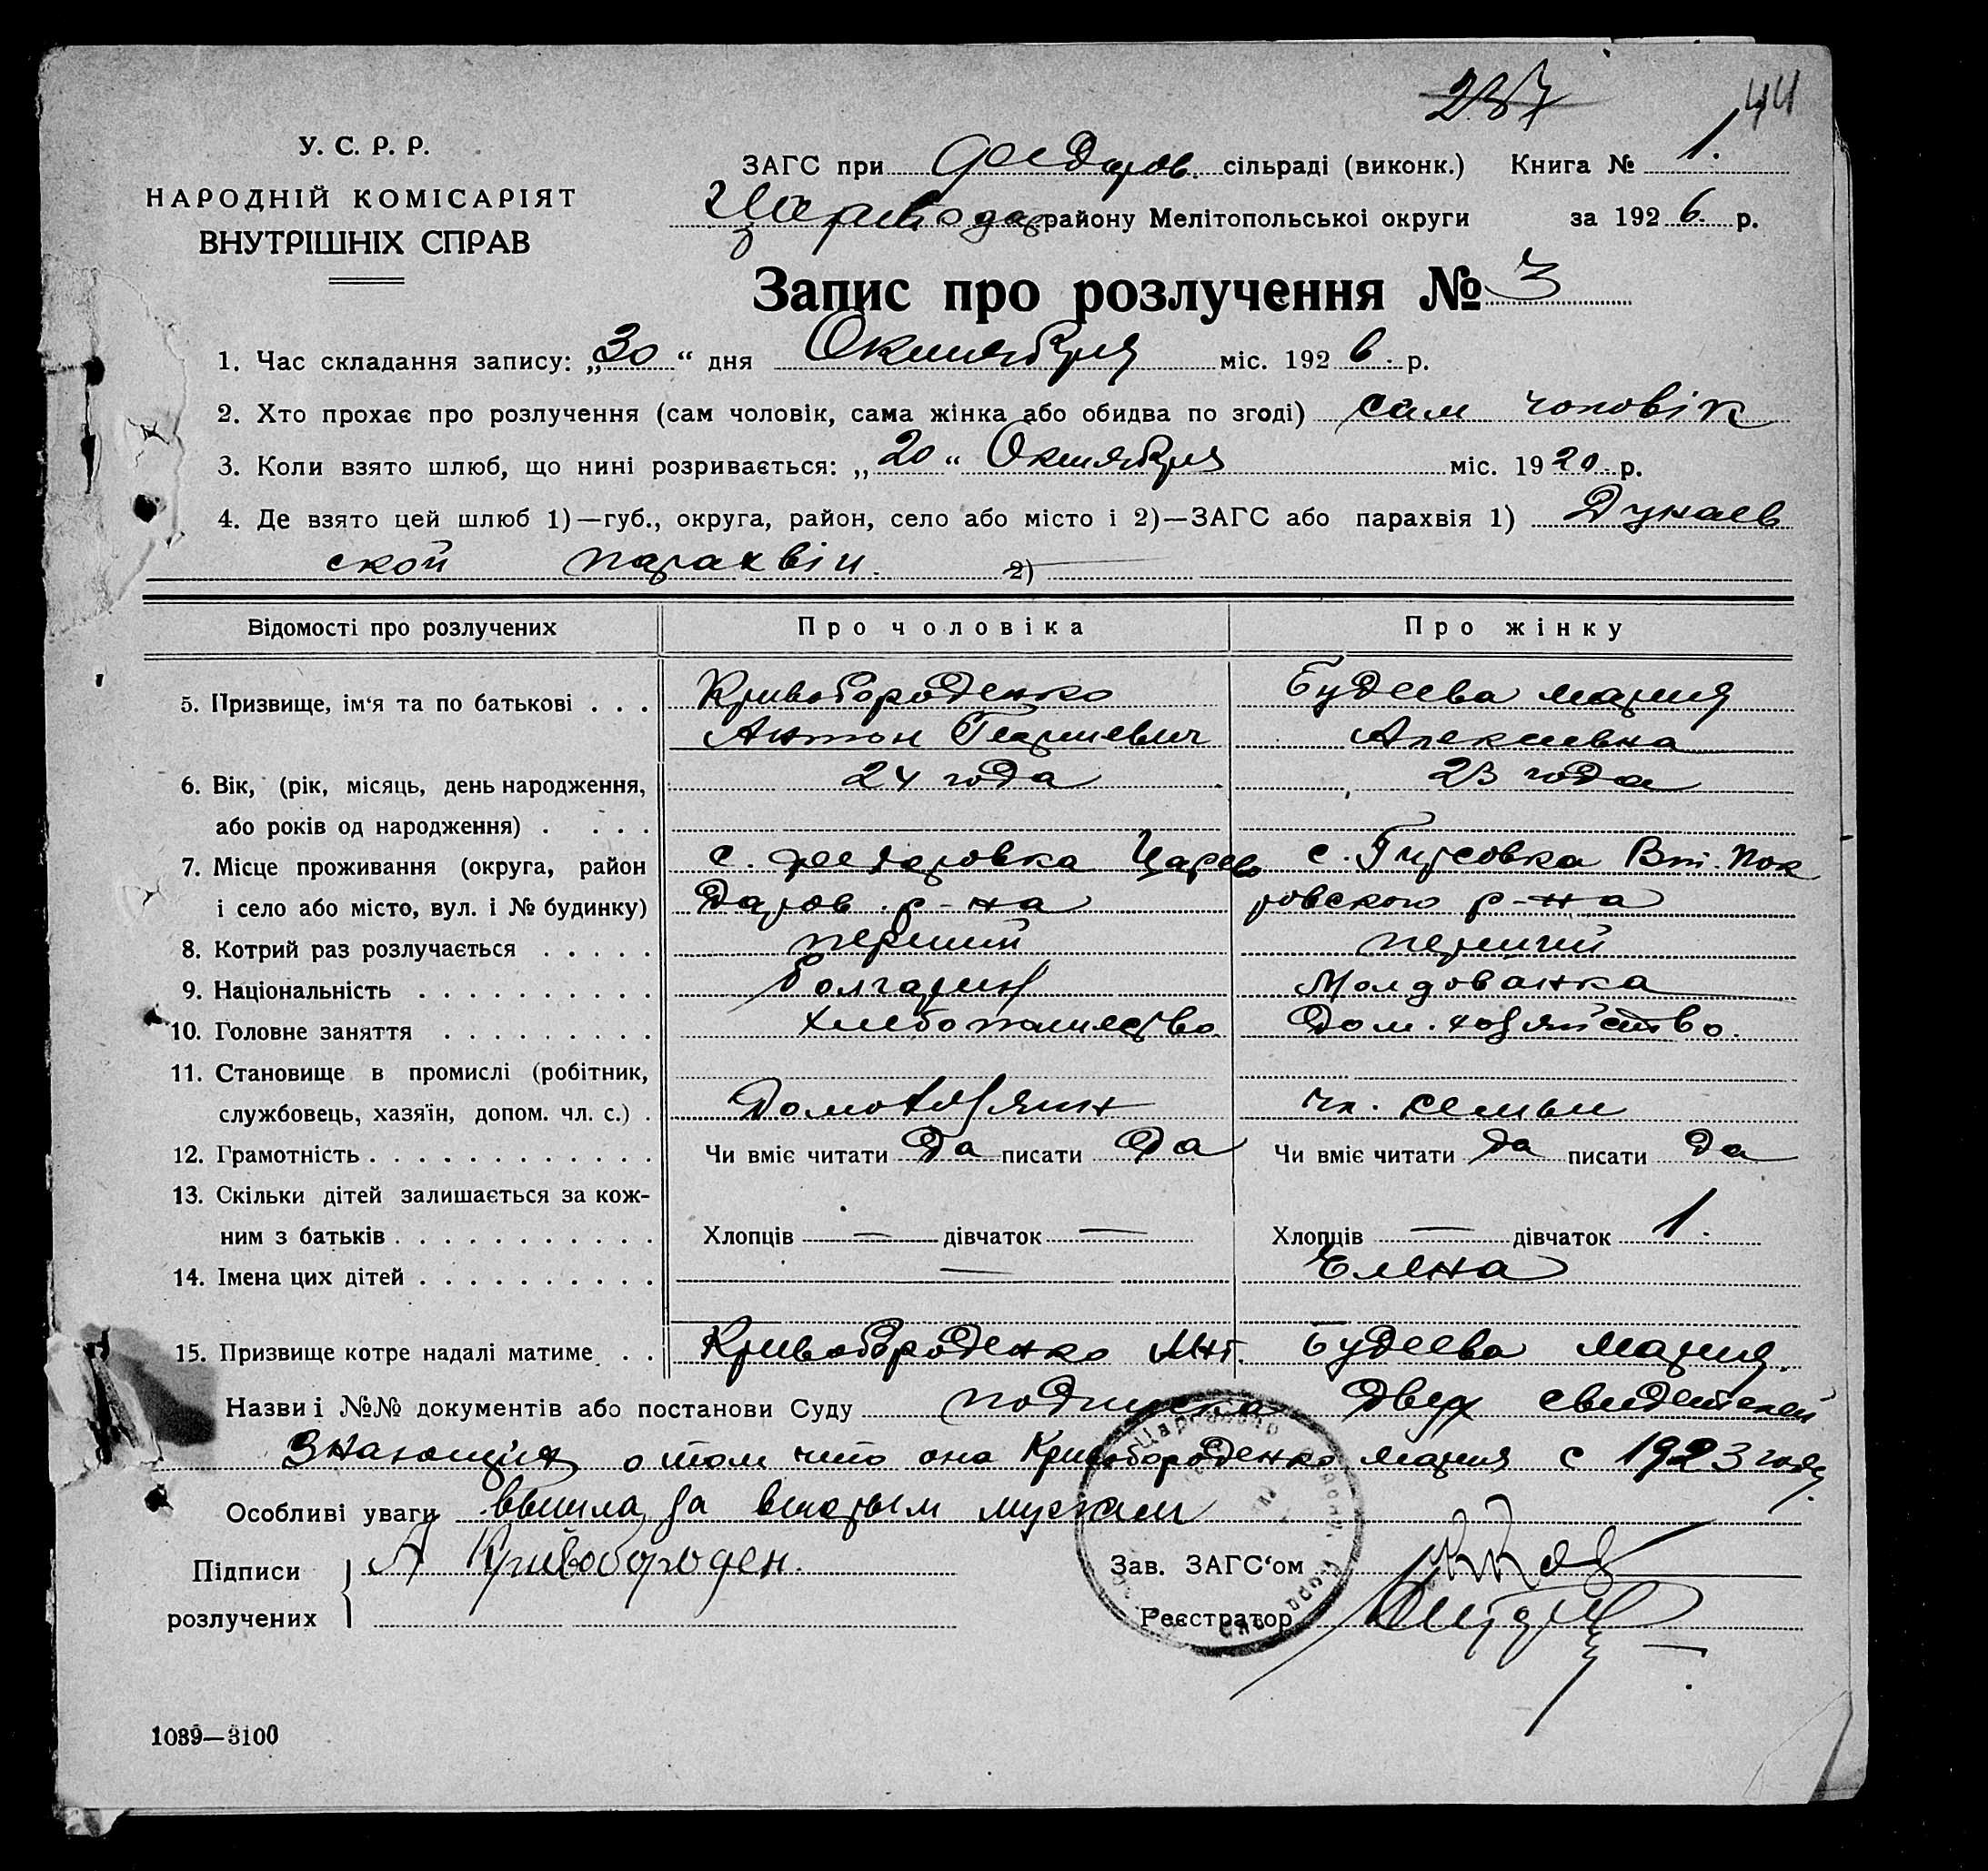 237 44
У. С. Р. Р.
НАРОДНІЙ КОМІСАРІЯТ
ВНУТРІШНІХ СПРАВ
ЗАГС при Федоров. сільраді (виконк.) Книга № 1.
Царевода району Мелітопольської округи за 1926 р.
Запис про розлучення № 3
1. Час складання запису: „30“ дня Октября міс. 1926 р.
2. Хто прохає про розлучення (сам чоловік, сама жінка або обидва по згоді) сам чоловік
3. Коли взято шлюб, що нині розривається: „20“ Октября міс. 1920 р.
4. Де взято цей шлюб 1)—губ., округа, район, село або місто і 2)—ЗАГС або парахвія 1) Дунаев
ской парахвіи. 2)
Відомості про розлучених Про чоловіка Про жінку
5. Призвище, ім‘я та по батькові . . . Кривобороденко Будеева Мария
Антон Георгиевич Алексеевна
6. Вік, (рік, місяць, день народження, 24 года 23 года
або років од народження) . . . .
7. Місце проживання (округа, район с. Федоровка Царево с. Гирсовка Вт. Пок
і село або місто, вул. і № будинку) Даров. р-на ровского р-на
8. Котрий раз розлучається . . . . . перший перший
9. Національність . . . . . . . . . . Болгарин Молдованка
10. Головне заняття . . . . . . . . . Хлебопашество Дом. хозяйство.
11. Становище в промислі (робітник,
службовець, хазяїн, допом. чл. с.) . Домохозяин чл. семьи
12. Грамотність . . . . . . . . . . . . . Чи вміє читати Да писати Да Чи вміє читати Да писати Да
13. Скільки дітей залишається за кож-
ним з батьків . . . . . . . . . . . Хлопців — дівчаток — Хлопців — дівчаток 1.
14. Імена цих дітей . . . . . . . . . . — Елена
15. Призвище котре надалі матиме . . Кривобороденко Ант. Будеева Мария.
Назви і №№ документів або постанови Суду подписка двух свидетелей
знающих о том что она Кривобороденко Мария с 1923 году
Особливі уваги вышла за вторым мужам
Підписи А Кривобороден. Зав. ЗАГС‘ом
розлучених Реєстратор
1039—3100